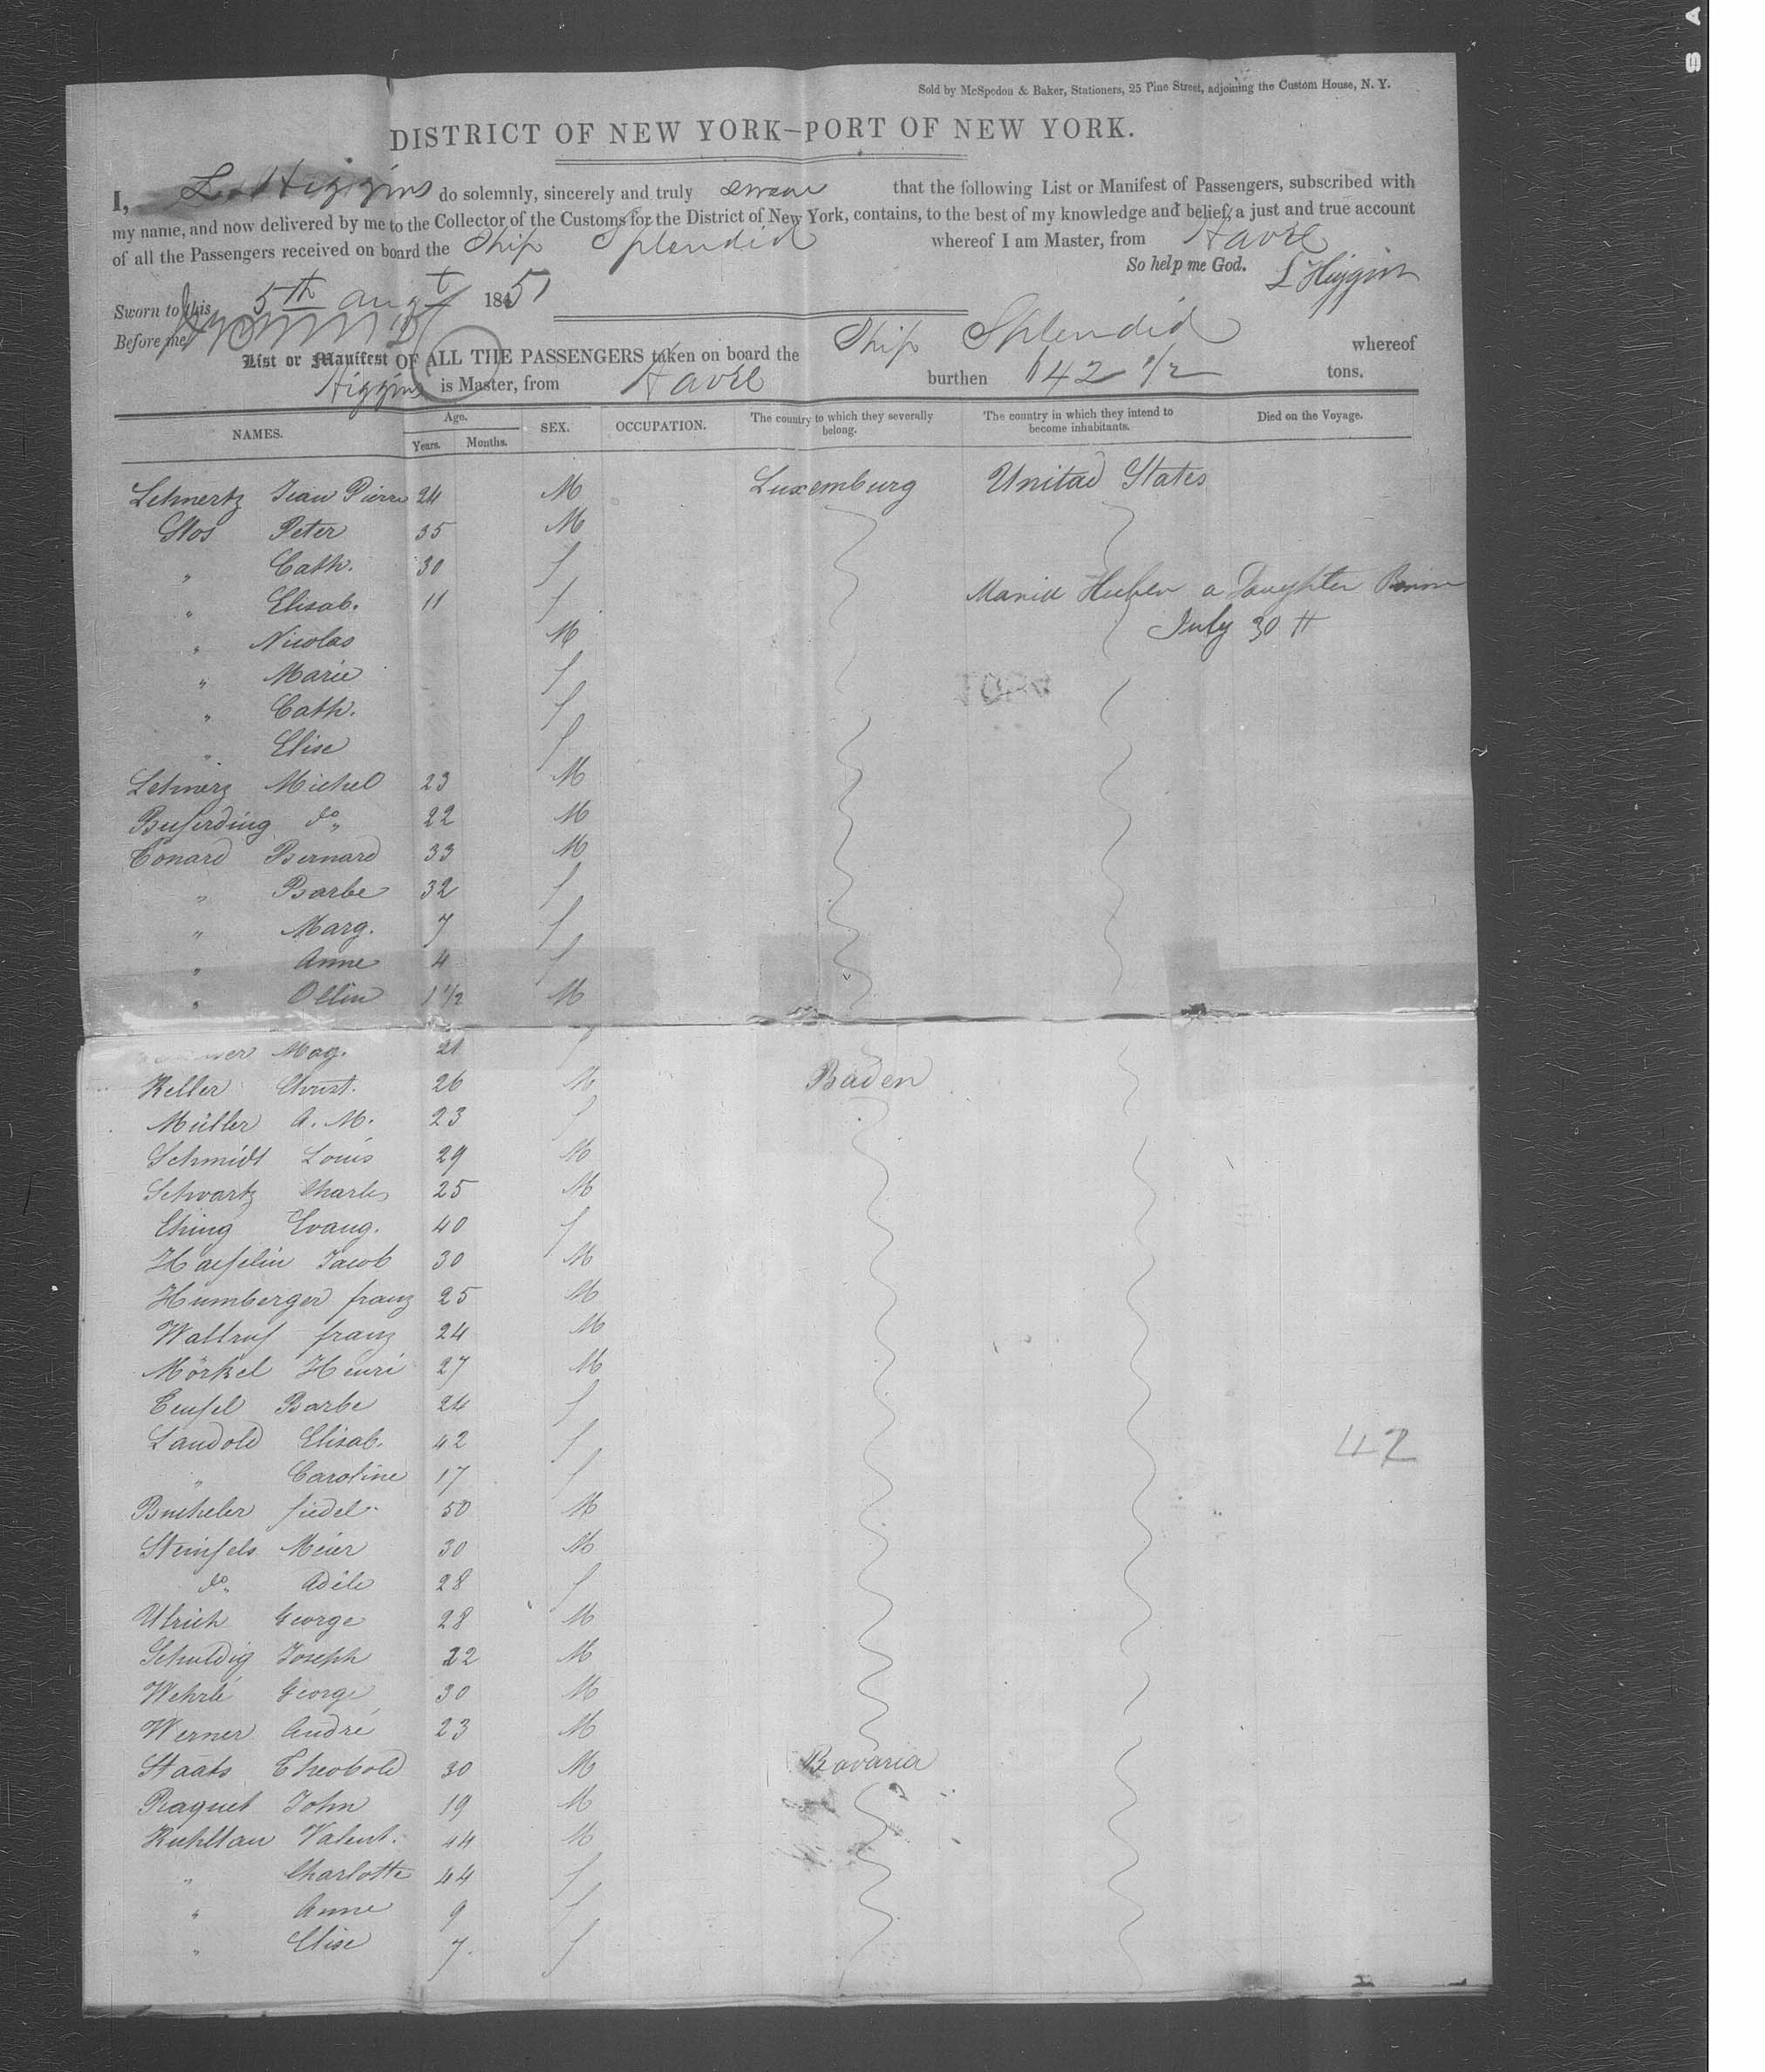 Sold by McSpedon & Baker, Stationers, 25 Pine Street, adjoining the Custom House, N. Y.
DISTRICT OF NEW YORK–PORT OF NEW YORK.
I, L. Higgins do solemnly, sincerely and truly swear that the following List or Manifest of Passengers, subscribed with
my name, and now delivered by me to the Collector of the Customs for the District of New York, contains, to the best of my knowledge and belief, a just and true account
of all the Passengers received on board the Ship Splendid whereof I am Master, from Havre
So help me God. L Higgins
Sworn to this 5th augt 1851
Before me
List or Manifest OF ALL THE PASSENGERS taken on board the Ship Splendid whereof
Higgins is Master, from Havre burthen 642 1/2 tons.
NAMES. Age. Years. Months. SEX. OCCUPATION. The country to which they severally belong. The country in which they intend to become inhabitants. Died on the Voyage.
Lehnertz Jean Pierre 24 M Luxemburg Unitad States
Glos Peter 35 M
" Cath. 30 f
" Elisab. 11 f Daughter
" Nicolas M July 30
" Marie f
" Cath. f
" Elise f
Lehnerz Michel 23 M
Buferding do" 22 M
Conard Bernard 33 M
" Barbe 32 f
" Marg. 7 f
" Anne 4 f
" Ollin 1 1/2 M
Mag. 21 f
Keller Christ. 26 M Baden
Müller A. M. 23 f
Schmidt Louis 29 M
Schvartz Charles 25 M
Ehing Evang. 40 f
Haefelin Jacob 30 M
Humberger franz 25 M
Waltruf franz 24 M
Mörkel Henri 27 M
Teufel Barbe 24 f
Landold Elisab. 42 f
42
" Caroline 17 f
Bucheler fidel 50 M
Steinfels Meier 30 M
do" Adèle 28 f
Ulrich George 28 M
Schuldig Joseph 22 M
Wehrlé George 30 M
Werner André 23 M
Staats Theobold 30 M Bavaria
Raquet John 19 M
Kuhltau Valent. 44 M
" Charlotte 44 f
" Anne 9 f
" Elise 7. f